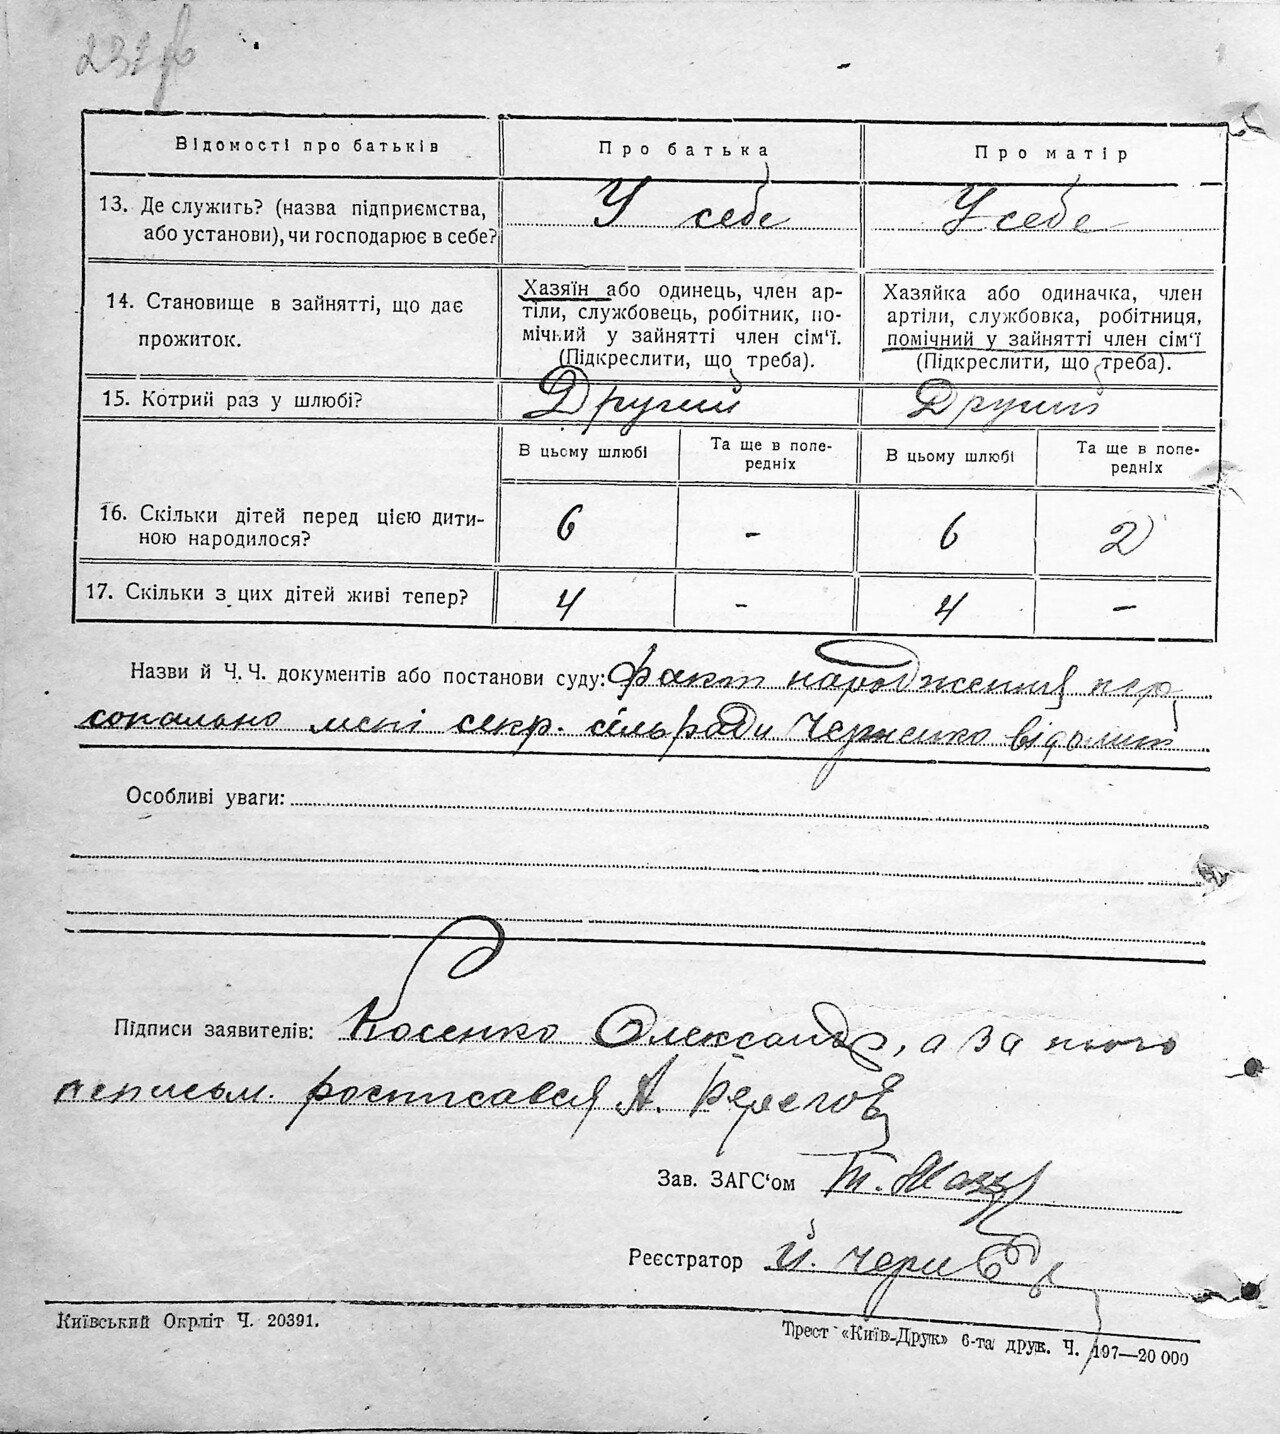 Відомості про батьків
Про батька
Про матір
13. Де служить? (назва підприємства,
або установи), чи господарює в себе?
У себе
У себе
14. Становище в зайнятті, що дає
прожиток.
Хазяїн або одинець, член ар-
тіли, службовець, робітник, по-
мічний у зайнятті член сім'ї.
(Підкреслити, що треба).
Хазяйка або одиначка, член
артіли, службовка, робітниця,
помічний у зайнятті член сім'ї
(Підкреслити, що треба).
15. Котрий раз у шлюбі?
Другий
Другий
В цьому шлюбі
Та ще в попе-
редніх
В цьому шлюбі
Та ще в попе-
редніх
16. Скільки дітей перед цією дити-
ною народилося?
6
-
6
2
17. Скільки з цих дітей живі тепер?
4
-
4
-
Назви й Ч. Ч. документів або постанови суду: факт народження пер
сонально мені секр. сільради відомий
Особливі уваги:
Підписи заявителів: Косенко Олександр, а за нього
неписьм. росписався А.
Зав. ЗАГС'ом
Реєстратор
Київський Окрліт Ч. 20391.
Трест «Київ-Друк» 6-та друк. Ч. 197—20 000